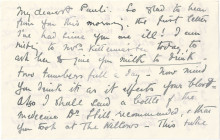 My dearest Pauli. So glad to hear
from you this morning. the first letter
I've had since you were ill! I am
writing to Mrs today, to
ask her to give you milk to drink
two tumblers full a day - now mind
you drink it as it affects your blood -
Also I shall send a bottle of the
medecine Dr. recommended, & that
you took at The Willows - This tube